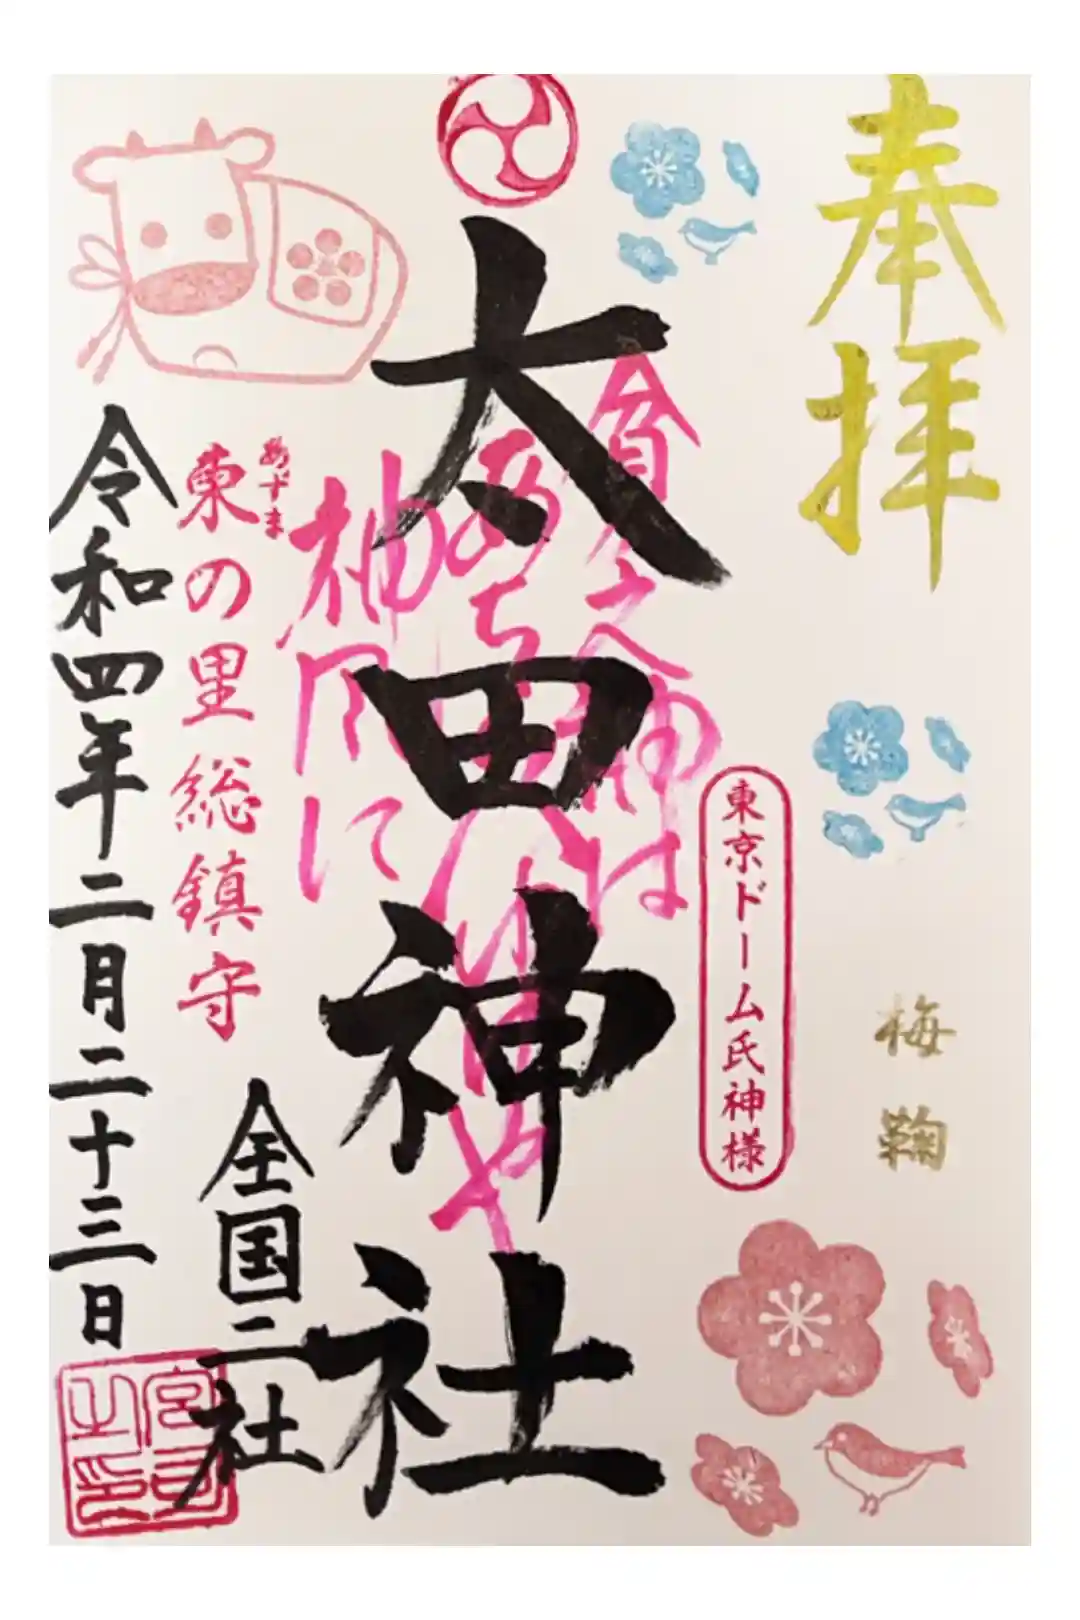 奉拝
梅鞠
東京ドーム氏神様
貧乏神は
神風に
太田神社
全国二社
あずま
東の里総鎮守
令和四年二月二十三日
宮司之印